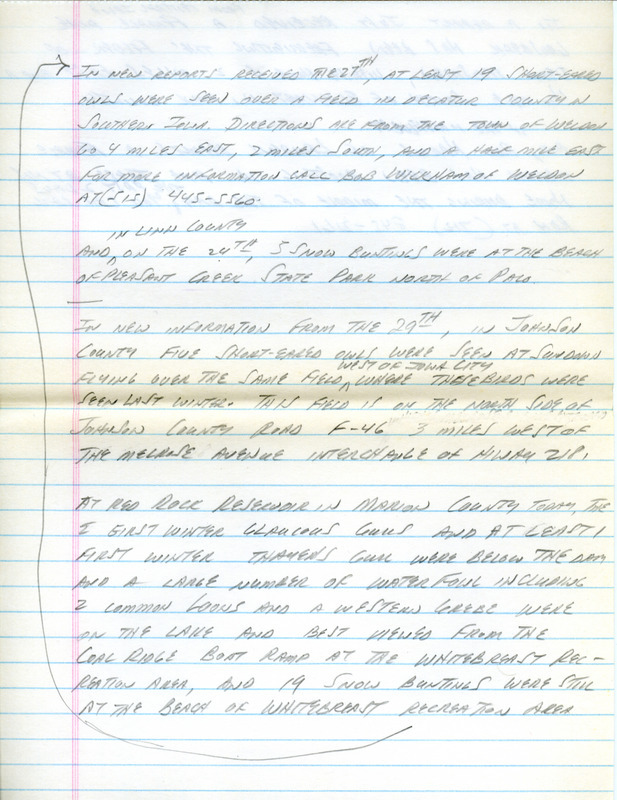 In new reports received the 27th, at least 19 short-eared
owls were seen over a field in Decatur County in
Southern Iowa. Directions are from the town of Weldon
go 4 miles east, 2 miles south, and a half mile east
For more information call Bob Wickham of Weldon
at (515) 445-5560.
in Linn County
And, on the 24th, 5 snow buntings were at the beach
of Pleasant Creek State Park north of Palo.
In new information from the 29th, in Johnson
County five short-eared owls were seen at sundown
west of Iowa City
flying over the same field where these birds were
seen last winter. This field is on the north side of
Johnson County Road F-46 3 miles west of
the Melrose Avenue interchange of Hiway 218.
At Red Rock Reservoir in Marion County today, the
2 first winter Glaucous Gulls and at least 1
first winter Thayers Gull were below the dam
and a large number of waterfowl including
2 common loons and a western grebe were
on the lake and best viewed from the
Coal Ridge Boat Ramp at the Whitebreast Rec-
reation Area, and 19 snow buntings were still
at the beach of Whitebreast Recreation Area